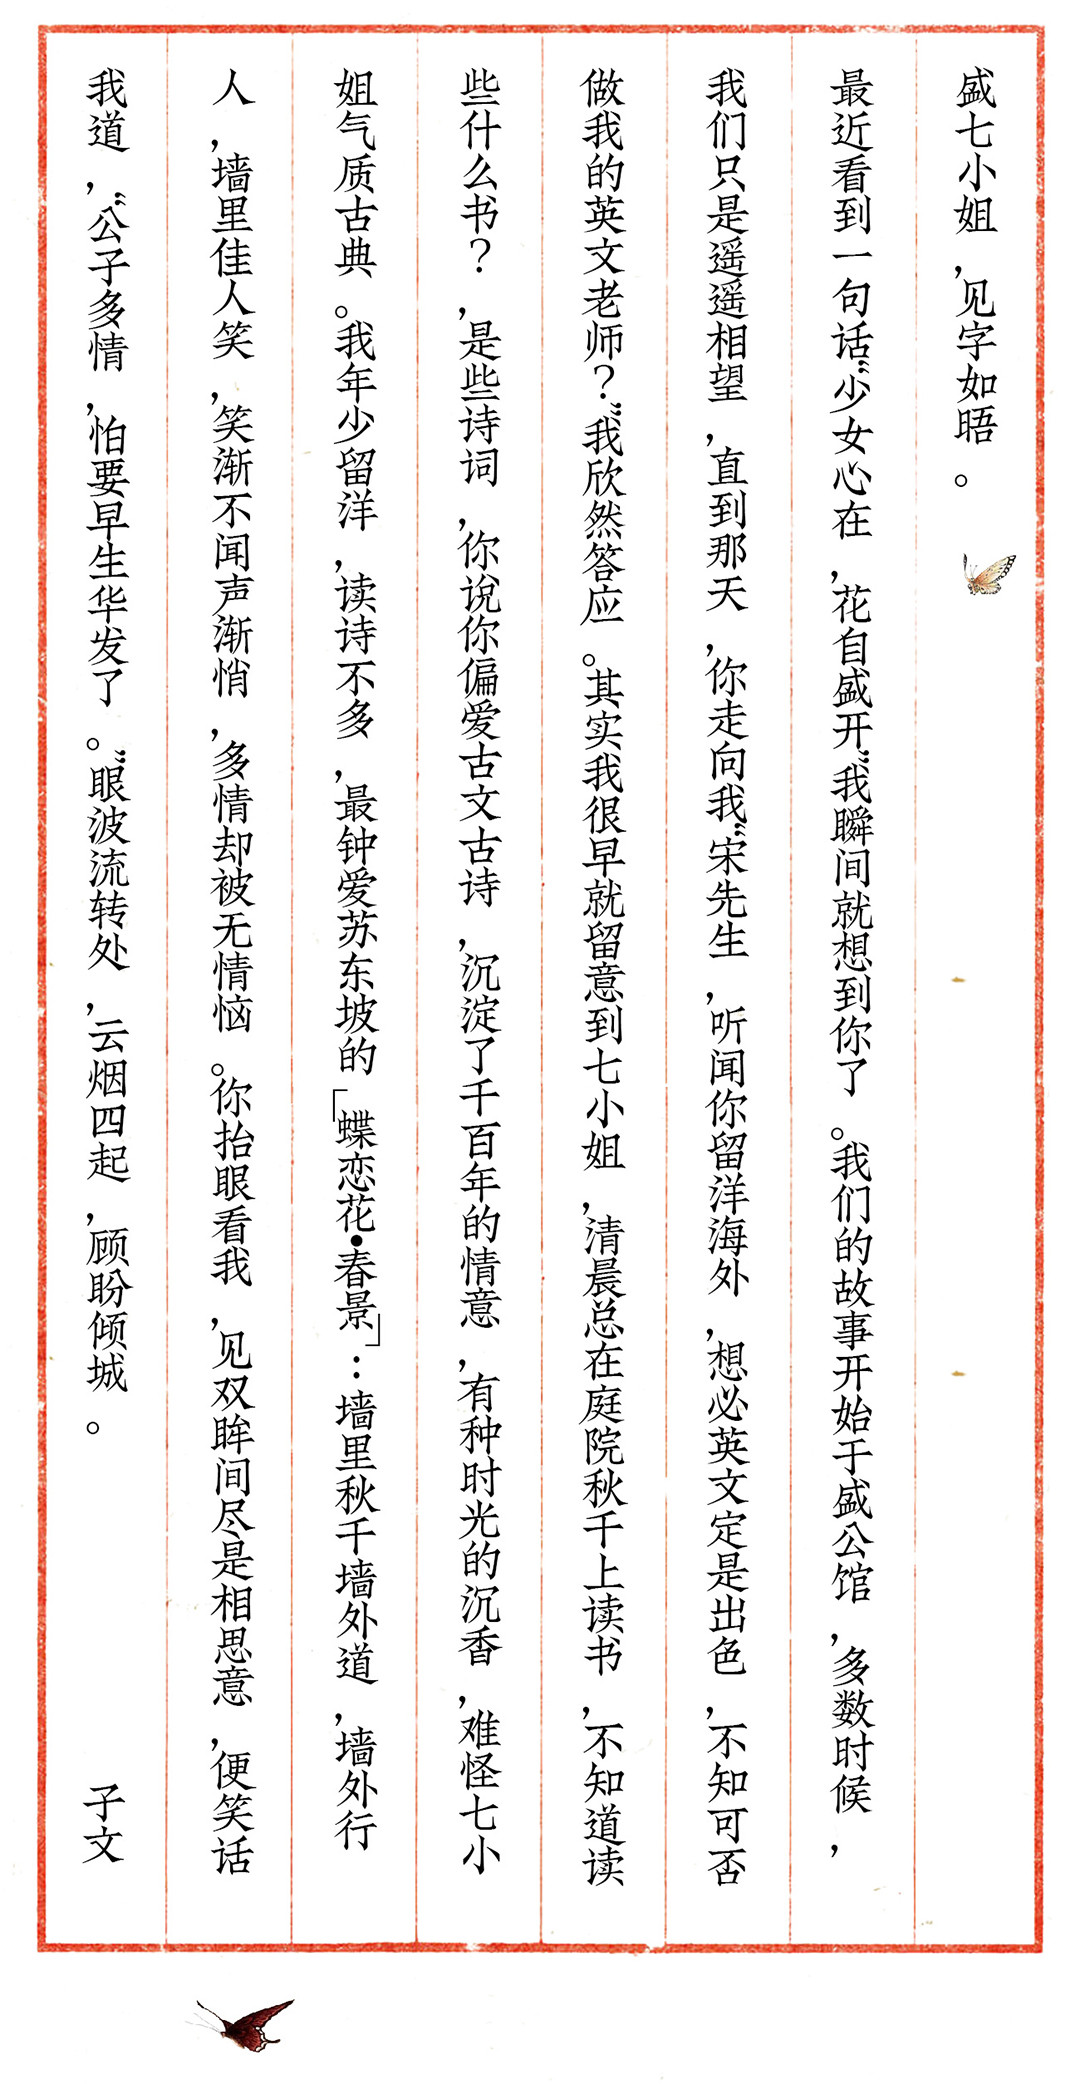 盛七小姐，见字如晤。
最近看到一句话“少女心在，花自盛开”我瞬间就想到你了。我们的故事开始于盛公馆，多数时候，
我们只是遥遥相望，直到那天，你走向我“宋先生，听闻你留洋海外，想必英文定是出色，不知可否
做我的英文老师？”我欣然答应。其实我很早就留意到七小姐，清晨总在庭院秋千上读书，不知道读
些什么书？，是些诗词，你说你偏爱古文古诗，沉淀了千百年的情意，有种时光的沉香，难怪七小
姐气质古典。我年少留洋，读诗不多，最钟爱苏东坡的「蝶恋花•春景」：墙里秋千墙外道，墙外行
人，墙里佳人笑，笑渐不闻声渐悄，多情却被无情恼。你抬眼看我，见双眸间尽是相思意，便笑话
我道，“公子多情，怕要早生华发了。”眼波流转处，云烟四起，顾盼倾城。 子文